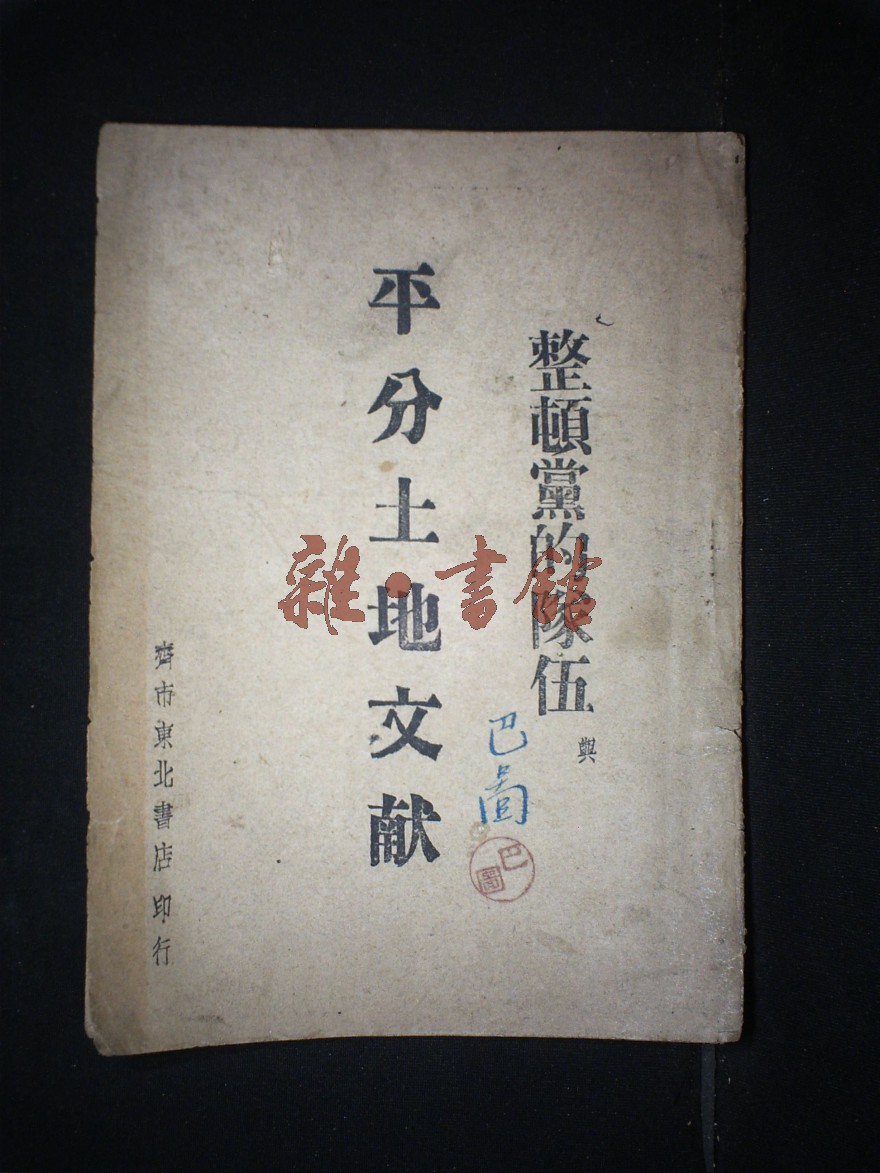 整頓黨的隊伍
與
平分土地文献
齊市東北書店印行
巴啚
巴圖
雜·書館